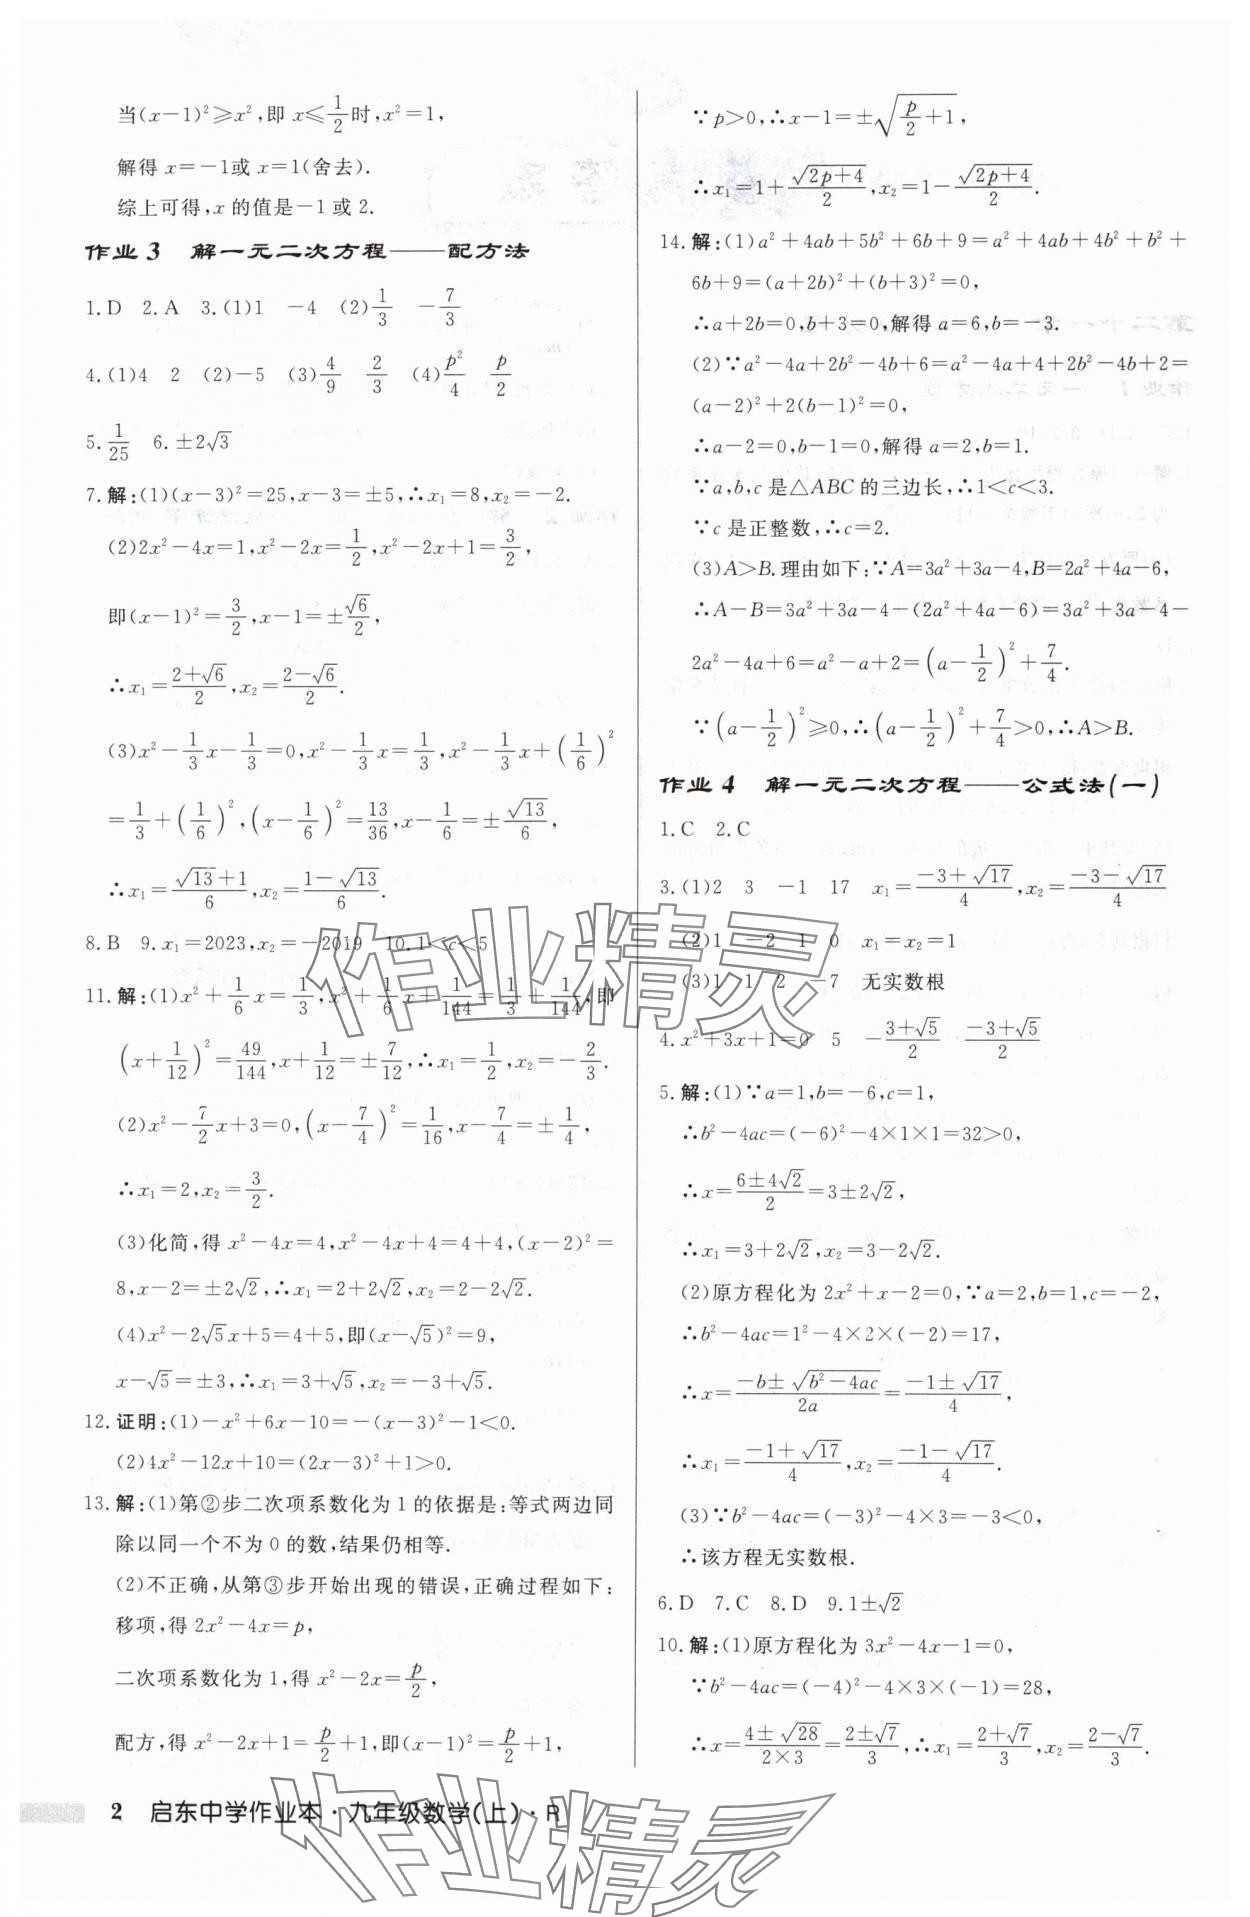 当(x-1)²≥x²,即 x≤1/2时,x²=1,
解得 x=-1或 x=1(舍去).
综上可得,x 的值是-1 或 2.
作业 3 解一元二次方程——配方法
1.D 2.A 3.(1)1 -4 (2)1/3 -7/3
4.(1)4 2 (2)-5 (3)4/9 2/3 (4)p²/4 p/2
5.1/25 6.±2√3
7.解:(1)(x-3)²=25,x-3=±5,∴x₁=8,x₂=-2.
(2)2x²-4x=1,x²-2x=1/2,x²-2x+1=3/2,
即(x-1)²=3/2,x-1=±√6/2,
∴x₁=(2+√6)/2,x₂=(2-√6)/2.
(3)x²-1/3x-1/3=0,x²-1/3x=1/3,x²-1/3x+(1/6)²
=1/3+(1/6)²,(x-1/6)²=13/36,x-1/6=±√13/6,
∴x₁=(√13+1)/6,x₂=(1-√13)/6.
8.B 9.x₁=2023,x₂=-2019 10.1<c<5
11.解:(1)x²+1/6x=1/3,x²+1/6x+1/144=1/3+1/144,即
(x+1/12)²=49/144,x+1/12=±7/12,∴x₁=1/2,x₂=-2/3.
(2)x²-7/2x+3=0,(x-7/4)²=1/16,x-7/4=±1/4,
∴x₁=2,x₂=3/2.
(3)化简,得 x²-4x=4,x²-4x+4=4+4,(x-2)²=
8,x-2=±2√2,∴x₁=2+2√2,x₂=2-2√2.
(4)x²-2√5x+5=4+5,即(x-√5)²=9,
x-√5=±3,∴x₁=3+√5,x₂=-3+√5.
12.证明:(1)-x²+6x-10=-(x-3)²-1<0.
(2)4x²-12x+10=(2x-3)²+1>0.
13.解:(1)第②步二次项系数化为 1 的依据是:等式两边同
除以同一个不为 0 的数,结果仍相等.
(2)不正确,从第③步开始出现的错误,正确过程如下:
移项,得 2x²-4x=p,
二次项系数化为 1,得 x²-2x=p/2,
配方,得 x²-2x+1=p/2+1,即(x-1)²=p/2+1,
∵p>0,∴x-1=±√(p/2+1),
∴x₁=1+√(2p+4)/2,x₂=1-√(2p+4)/2.
14.解:(1)a²+4ab+5b²+6b+9=a²+4ab+4b²+b²+
6b+9=(a+2b)²+(b+3)²=0,
∴a+2b=0,b+3=0,解得 a=6,b=-3.
(2)∵a²-4a+2b²-4b+6=a²-4a+4+2b²-4b+2=
(a-2)²+2(b-1)²=0,
∴a-2=0,b-1=0,解得 a=2,b=1.
∵a,b,c 是△ABC 的三边长,∴1<c<3.
∵c 是正整数,∴c=2.
(3)A>B.理由如下:∵A=3a²+3a-4,B=2a²+4a-6,
∴A-B=3a²+3a-4-(2a²+4a-6)=3a²+3a-4-
2a²-4a+6=a²-a+2=(a-1/2)²+7/4.
∵(a-1/2)²≥0,∴(a-1/2)²+7/4>0,∴A>B.
作业 4 解一元二次方程——公式法(一)
1.C 2.C
3.(1)2 3 -1 17 x₁=(-3+√17)/4,x₂=(-3-√17)/4
(2)1 -2 1 0 x₁=x₂=1
(3)1 1 2 -7 无实数根
4.x²+3x+1=0 5 -(3+√5)/2 (-3+√5)/2
5.解:(1)∵a=1,b=-6,c=1,
∴b²-4ac=(-6)²-4×1×1=32>0,
∴x=(6±4√2)/2=3±2√2,
∴x₁=3+2√2,x₂=3-2√2.
(2)原方程化为 2x²+x-2=0,∵a=2,b=1,c=-2,
∴b²-4ac=1²-4×2×(-2)=17,
∴x=(-b±√(b²-4ac))/2a=(-1±√17)/4,
∴x₁=(-1+√17)/4,x₂=(-1-√17)/4.
(3)∵b²-4ac=(-3)²-4×3=-3<0,
∴该方程无实数根.
6.D 7.C 8.D 9.1±√2
10.解:(1)原方程化为 3x²-4x-1=0,
∵b²-4ac=(-4)²-4×3×(-1)=28,
∴x=(4±√28)/(2×3)=(2±√7)/3,∴x₁=(2+√7)/3,x₂=(2-√7)/3.
2 启东中学作业本·九年级数学(上)·R
作业精灵
作业精灵